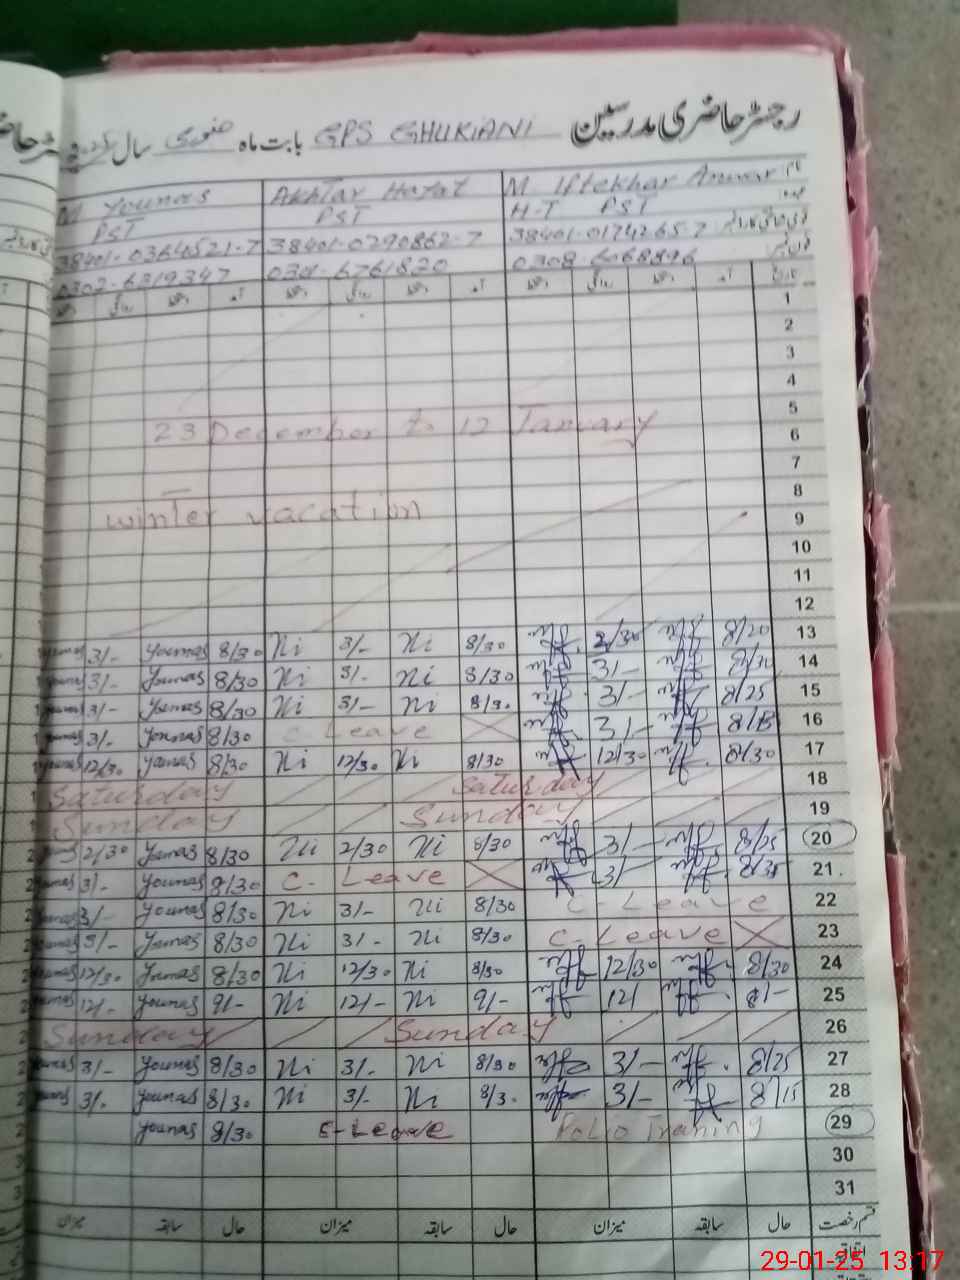 رجسٹر حاضری مدرسین GPS GHUKIANI بابت ماہ جنوری سال
M Younas Akhtar Hayat M Iftekhar Anwar نام
PST PST H-T PST عہدہ
38401-0364521-7 38401-0290862-7 38401-0174265-7
0302-6319347 0301-6761820 0308-6068896 فون نمبر
دستخط روانگی دستخط آمد دستخط روانگی دستخط آمد دستخط روانگی دستخط آمد تاریخ
1
2
3
4
5
23 December to 12 January 6
7
8
winter vacation 9
10
11
12
3/- Younas 8/30 Ni 3/- Ni 8/30 2/30 8/20 13
3/- Younas 8/30 Ni 3/- Ni 8/30 3/- 8/30 14
3/- Younas 8/30 Ni 3/- Ni 8/30 3/- 8/25 15
3/- Younas 8/30 C. Leave 3/- 8/15 16
12/30 Younas 8/30 Ni 12/30 Ni 8/30 12/30 8/30 17
Saturday Saturday 18
Sunday Sunday 19
2/30 Younas 8/30 Ni 2/30 Ni 8/30 3/- 8/25 20
3/- Younas 8/30 C- Leave 3/- 8/35 21
3/- Younas 8/30 Ni 3/- Ni 8/30 C-Leave 22
3/- Younas 8/30 Ni 3/- Ni 8/30 C-Leave 23
12/30 Younas 8/30 Ni 12/30 Ni 8/30 12/30 8/30 24
12/- Younas 9/- Ni 12/- Ni 9/- 12/ 8/- 25
Sunday Sunday 26
3/- Younas 8/30 Ni 3/- Ni 8/30 3/- 8/25 27
3/- Younas 8/30 Ni 3/- Ni 8/30 3/- 8/15 28
Younas 8/30 C-Leave Polio Traning 29
30
31
میزان سابقہ حال میزان سابقہ حال میزان سابقہ حال قسم رخصت
اتفاقیہ
29-01-25 13:17